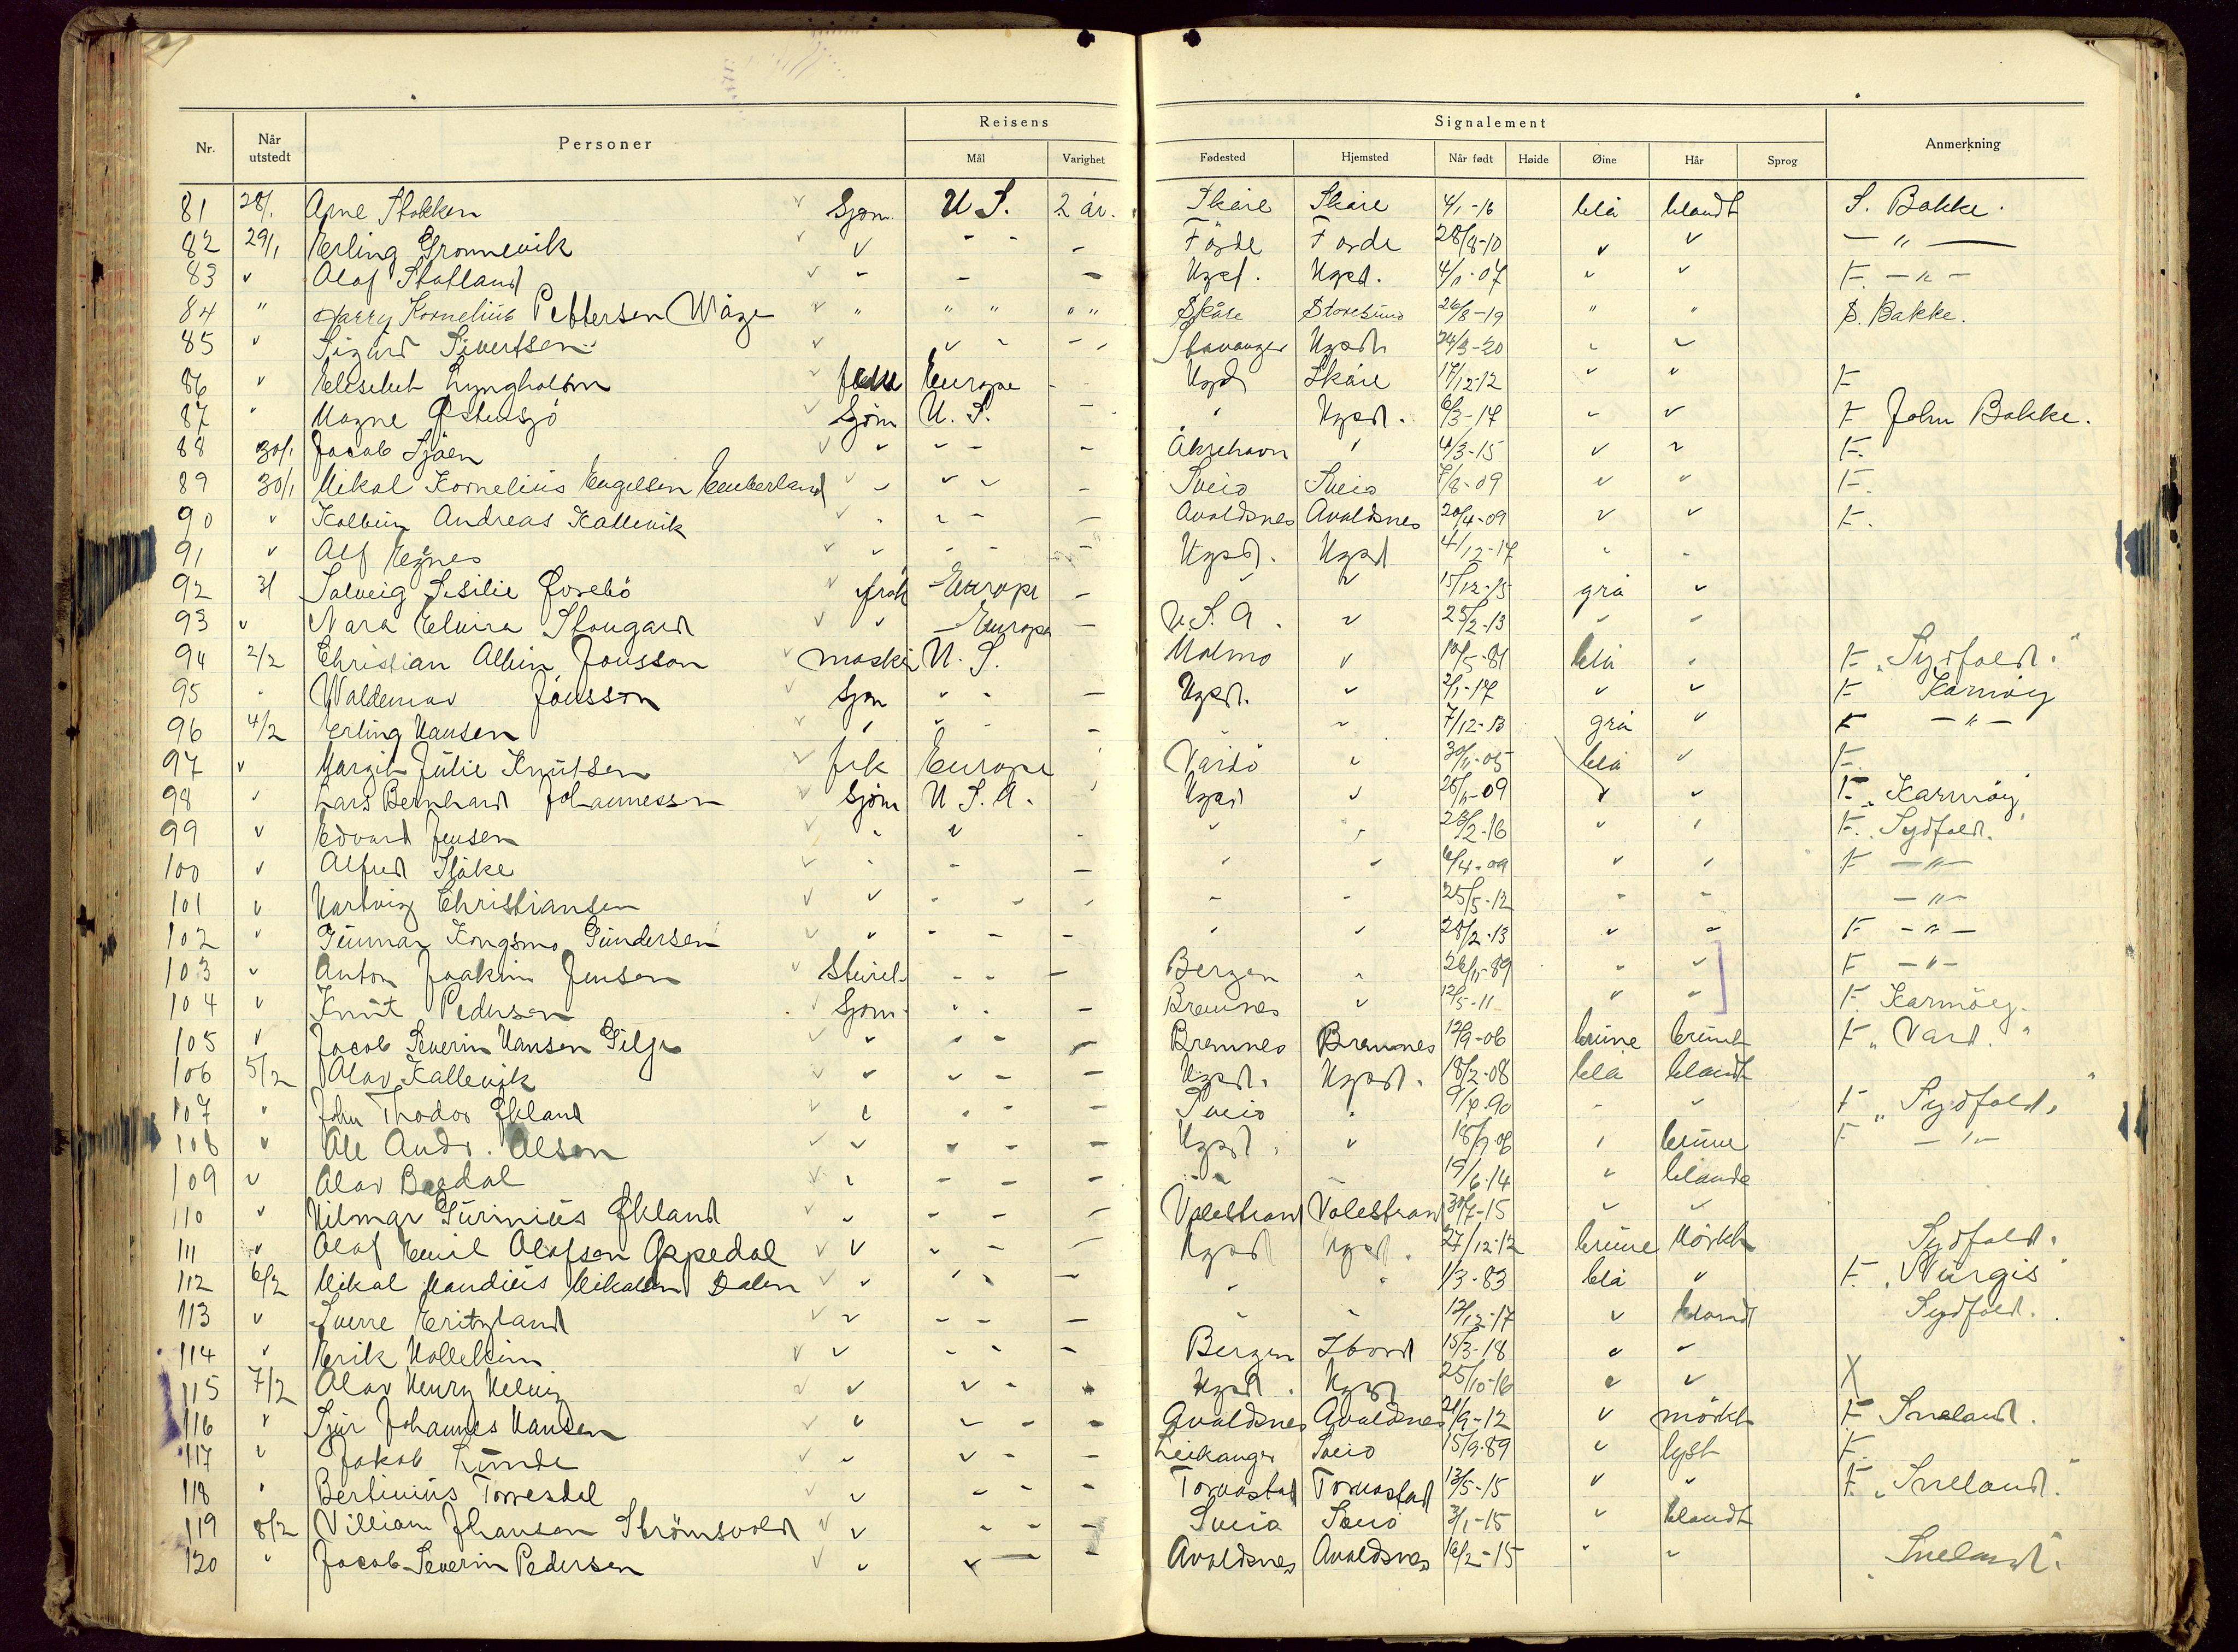 Reisens
Signalement
Nr. Når utstedt Personer Mål Varighet Fødested Hjemsted Når født Høide Øine Hår Sprog Anmerkning
81 28/1 Arne Stokken Sjøm. U S. 2 år. Skåre Skåre 4/1-16 blå blandt S. Bakke.
82 29/1 Erling Grønnevik v - - - Förde Förde 28/8-10 v v — " —
83 v Olaf Stutland v - - - Hgsd. Hgsd. 4/1-07 " v F. - " -
84 " Harry Kornelius Pettersen Våge v " " " " " Skåre Storesund 26/8-19 " " S. Bakke.
85 v Sigurd Sivertsen v v - - - Stavanger Hgsd. 24/3-20 - v
86 v Elisebet Lyngholm v frue Europa - Hgsd Skåre 17/12-12 " v F
87 " Magne Østensjö v Sjøm U. S. - " Hgsd. 6/3-17 - v F John Bakke.
88 30/1 Jacob Sjöen v v - - - Åkrehavn " 4/3-15 v v F.
89 30/1 Mikal Kornelius Engelsen Emberland v - v v - Sveio Sveio 7/8-09 v " F.
90 v Kolbein Andreas Kallevik v - v - - Avaldsnes Avaldsnes 20/4-09 v v F.
91 v Alf Egnes v v - - - Hgsd. Hgsd 4/12-17 - -
92 31 Solveig Sesilie Øvrebö v frøk Europa - " v 15/12-15 grå v
93 v Nara Elvira Stougard v v Europa - U.S.A. v 25/2-13 v -
94 2/2 Christian Albin Jonsson v maski U. S. Malmo v 10/5-81 blå - F „Sydfold."
95 - Waldemar Jonsson v Sjøm v - - Hgsd. v 2/1-17 v v F Karmöy
96 4/2 Erling Hansen v " v - - v 7/12-13 grå v F - " -
97 v Margit Julie Knutsen v frk Europa " Vardö v 30/11-05 blå v F.
98 v Lars Bernhard Johannessen v Sjøm U. S. A. " Hgsd v 28/11-09 v v F. „Karmöy"
99 v Edvard Jensen v - v - v - 28/2-16 v " F. „Sydfold."
100 v Alfred Ståke v - - - " - 6/4-09 v " F - " -
101 v Hartvig Christiansen v v - - - - - 25/5-12 - - - " -
102 v Gunnar Kongsmo Gundersen v v - - - " v 28/2-13 v - F - " -
103 v Anton Joakim Jensen v Stuert - - - Bergen - 26/11-89 - v F - " -
104 v Knut Pedersen v Sjøm - - - Bremnes v 12/5-11 v - F Karmöy.
105 v Jacob Severin Hansen Gilje v v - - - Bremnes Bremnes 12/9-06 brune brunt F „Vard."
106 5/2 Olav Kallevik v v v - - Hgsd. Hgsd. 18/2-08 blå blandt
107 " John Thodor Økland v v - - - Sveio " 9/4-90 - v F „Sydfold."
108 v Ole Andr. Olsen v v - - - Hgsd. v 18/9-06 " brune F - " -
109 v Olav Bagdal v v - - - - - 19/6-14 v blande
110 v Hilmar Gurinius Økland v v - - - Valestrand Valestrand 30/7-15 v v
111 v Olaf Emil Olafsen Oppedal v v - - - Hgsd Hgsd. 27/12-12 brune Mörkh Sydfold.
112 6/2 Mikal Mandius Mikalsen Dalen v v " - - " " 1/3-83 blå v F. „Nurgis"
113 v Sverre Eritzland v v - - - - - 12/12-17 v blandt Sydfold.
114 v Erik Hallekim v v - - - Bergen Stord 15/3-18 v v
115 7/2 Olav Henry Helvig v v v - - Hgsd. Hgsd 25/10-16 v v X
116 v Sjur Johannes Hansen v v v - - Avaldsnes Avaldsnes 21/9-12 v mörkt F Sneland.
117 v Jakob Lunde v v v - - Leikanger Sveio 15/9-89 v lyst F.
118 " Bertinius Torresdal v v - - - Torvastad Torvastad 13/5-15 v v F. „Sneland."
119 8/2 Villiam Johansen Strömsvold v v - - - Sveio Sveio 3/1-15 v blandt
120 " Jacob Severin Pedersen v v v — - Avaldsnes Avaldsnes 16/2-15 " v „Sneland."